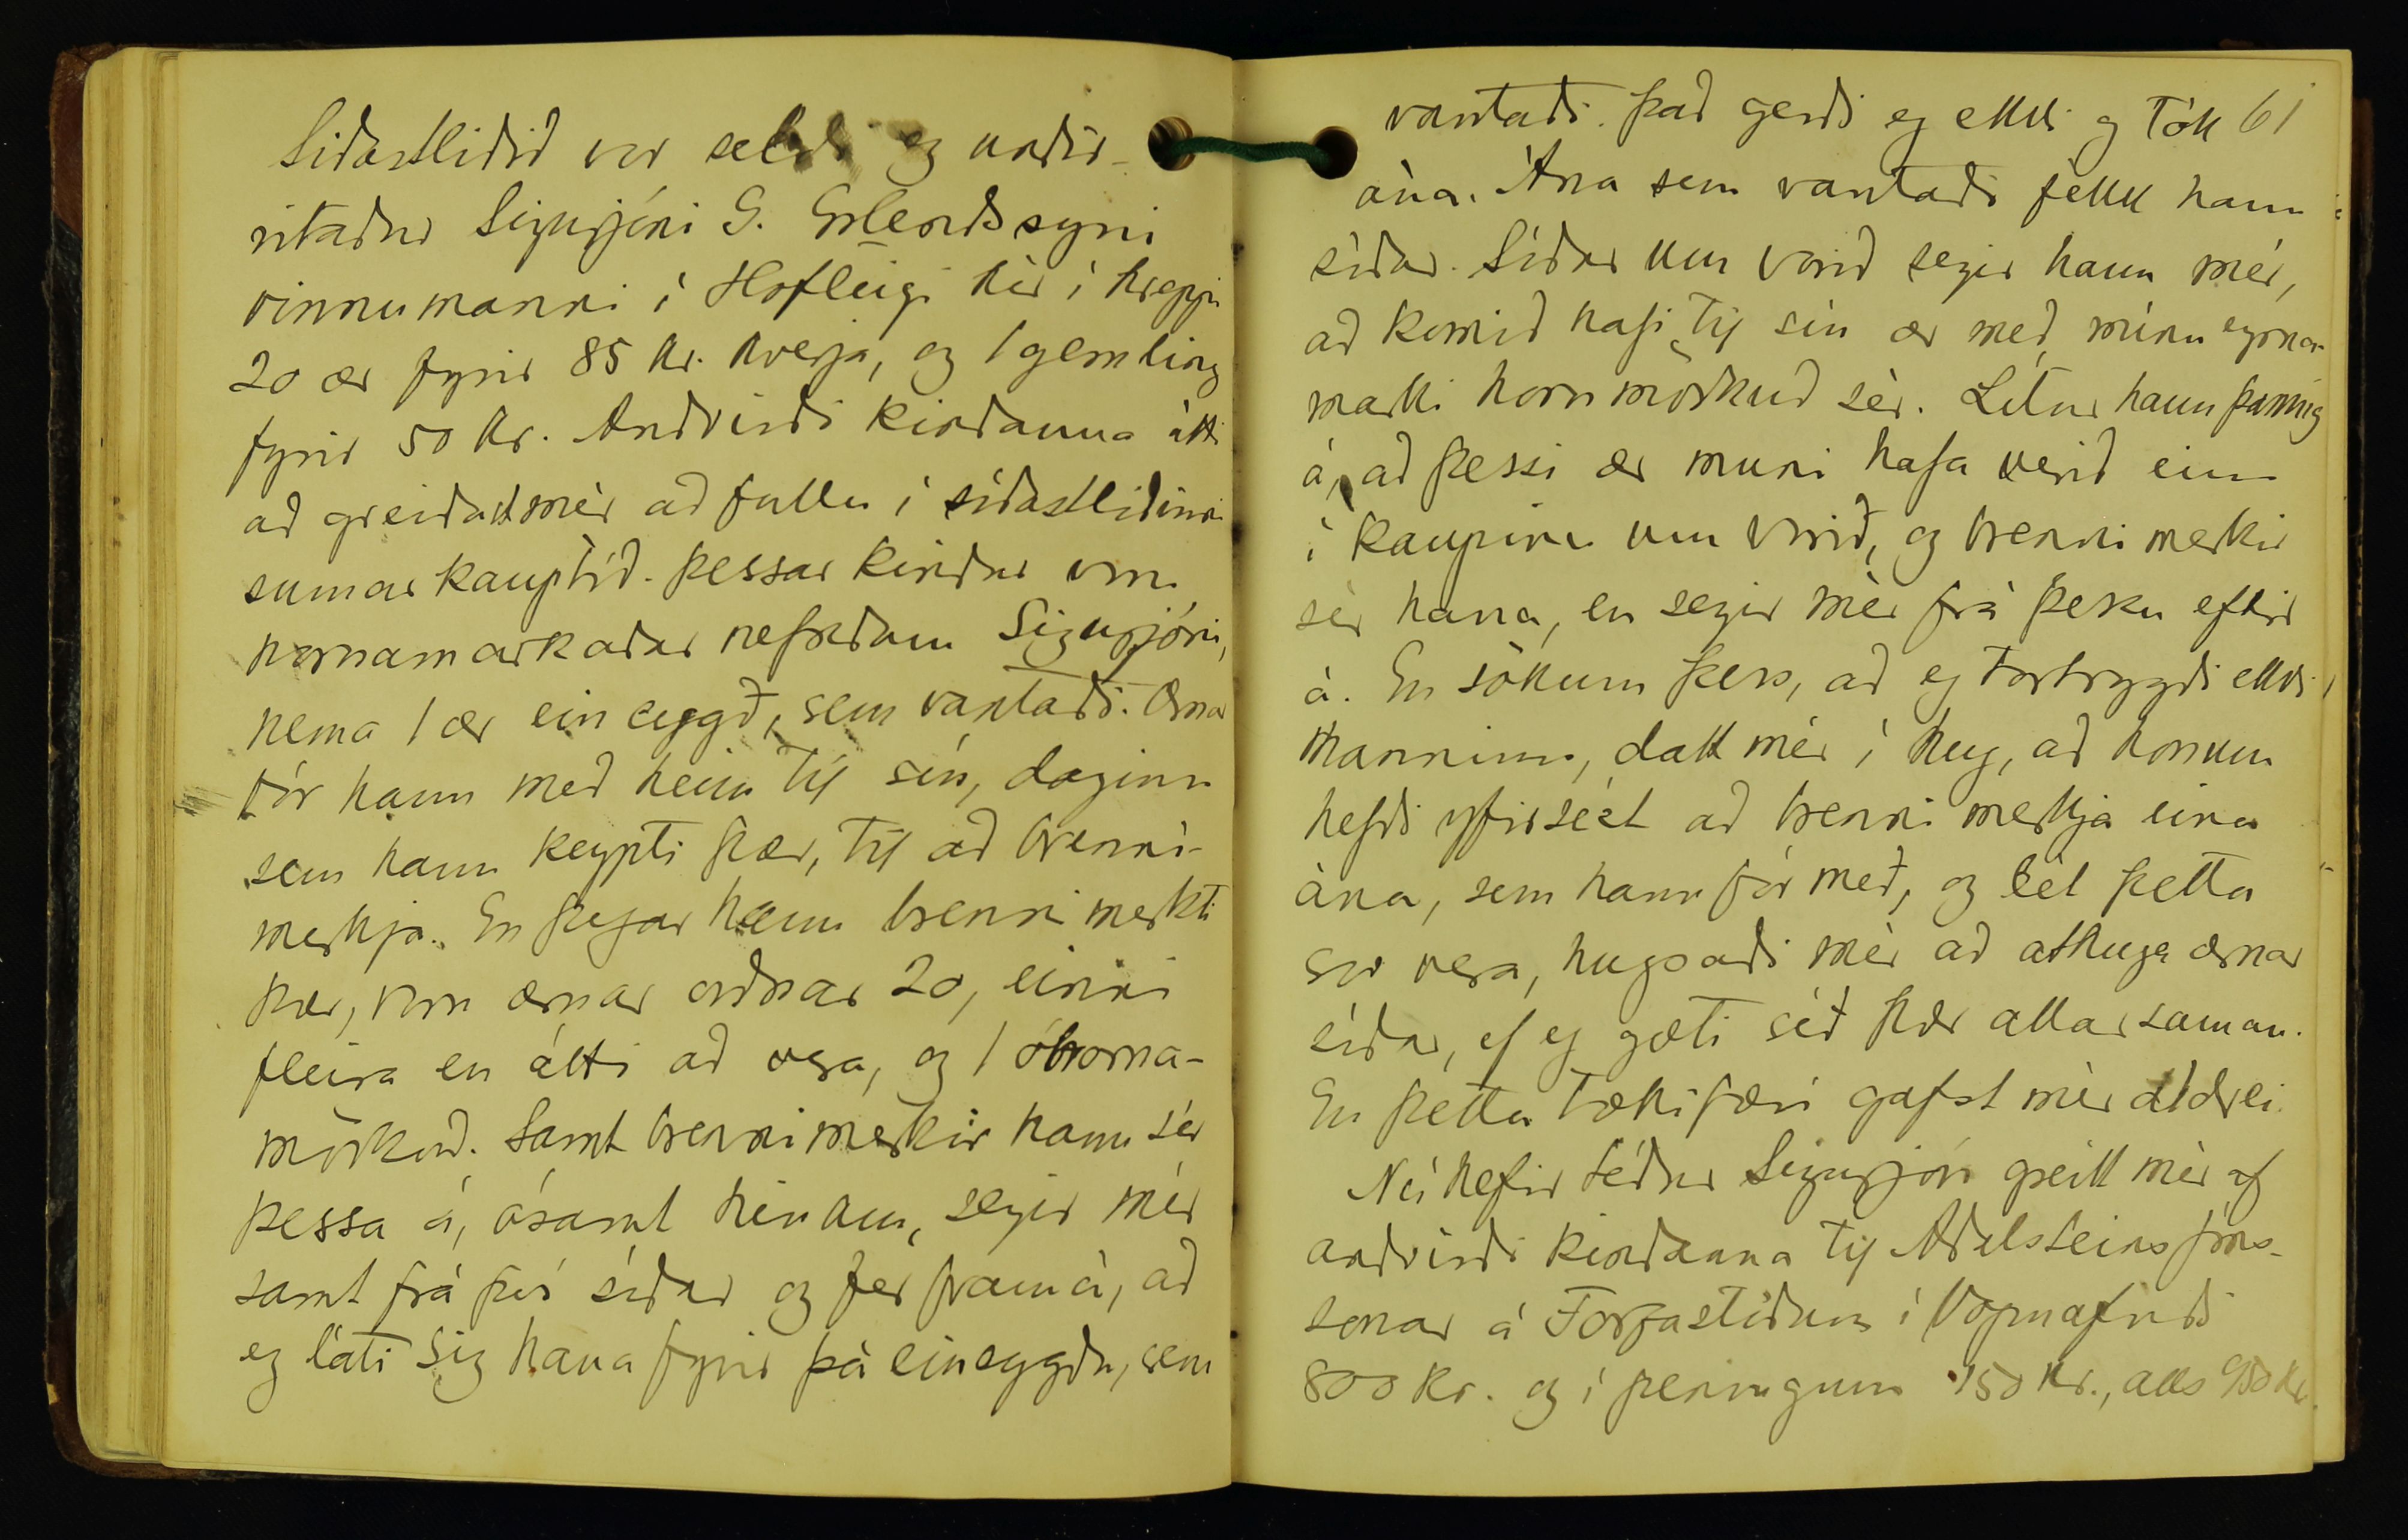 Síðastliðið vor seldi eg undir-
ritaður Sigurjóni G. Erlendssyni
vinnumanni í Hofteigi hér í hreppi
20 ær fyrir 85 kr. hverja, og 1 gemling
fyrir 50 kr. Andvirði kindanna átti
að greiðast mér að fullu í síðastliðinni
sumarkauptíð. Þessar kindur voru
hornamarkaðar nefndum Sigurjóni,
nema 1 ær eineygð, sem vantaði. Ærnar
fór hann með heim til sín, daginn
sem hann keypti þær, til að brenni-
merkja. En þegar hann brennimerkti
þær, voru ærnar orðnar 20, einni
fleira en átti að vera, og 1 óhorna-
mörkuð. Samt brennimerkir hann sér
þessa á, ásamt hinum, segir mér
samt frá því síðar og fer fram á, að
eg láti sig hana fyrir þá eineygðu, sem
61
vantaði. Það gerði eg ekki og tók
ána. Ána sem vantaði fékk hann
síðar. Síðar um vorið segir hann mér,
að komið hafi til sín ær með mínu eyrna-
marki hornmörkuð sér. Lítur hann þannig
á, að þessi ær muni hafa verið ein
í kaupinu um vorið, og brennimerkir
sér hana, en segir mér frá þessu eftir
á. En sökum þess, að eg tortryggði ekki
manninn, datt mér í hug, að honum
hefði yfirsést að brennimerkja eina
ána, sem hann fór með, og lét þetta
svo vera, hugsaði mér að athuga ærnar
síðar, ef eg gæti séð þær allar saman.
En þetta tækifæri gafst mér aldrei.
Nú hefir téður Sigurjón greitt mér af
andvirði kindanna til Aðalsteins Jóns-
sonar á Torfastöðum í Vopnafirði
800 kr. og í peningum 150 kr., alls 950 kr.